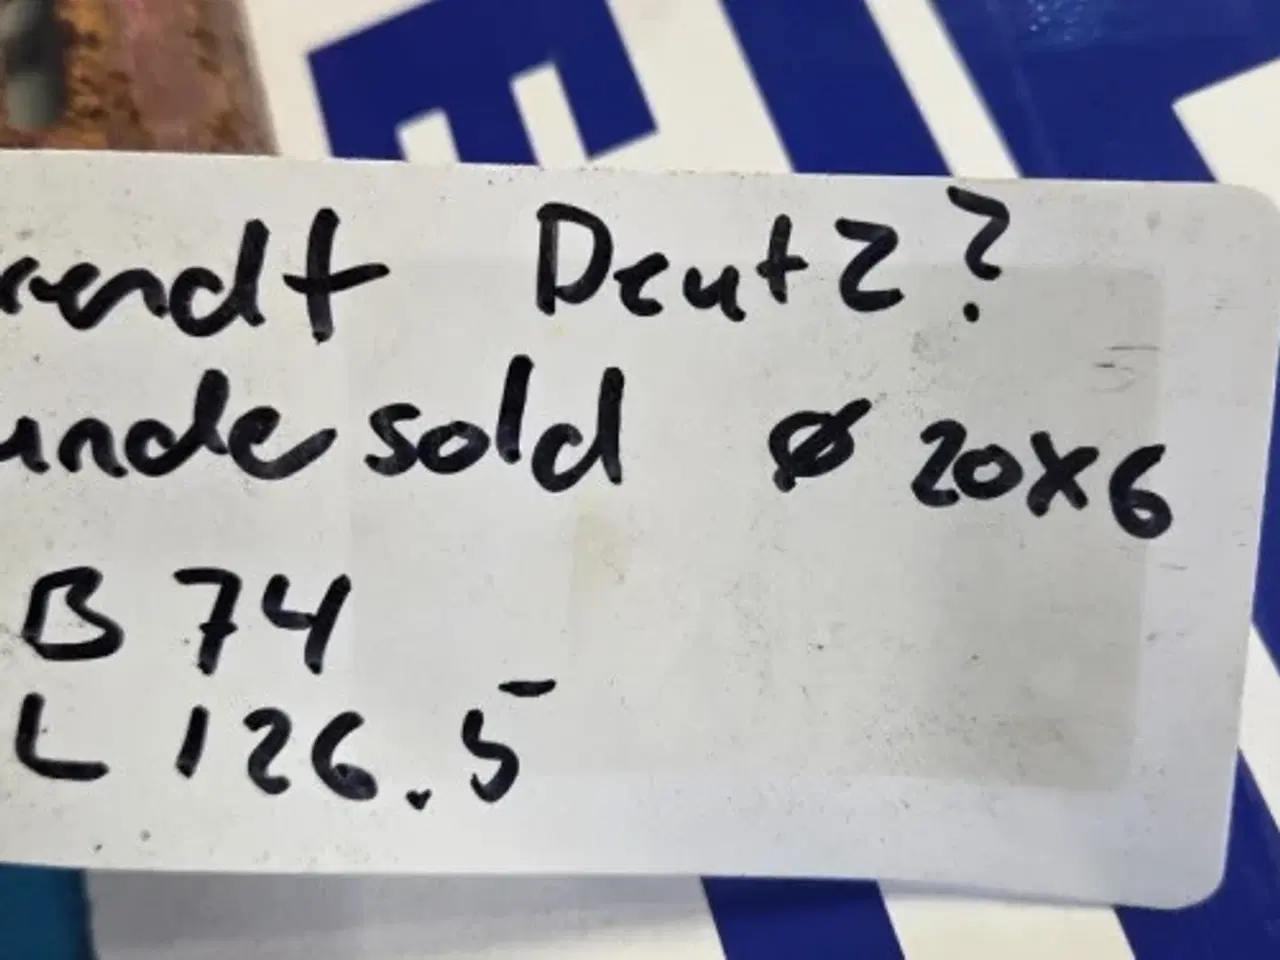 endt Deutz?
undersold ø 20x6
B 74
L 126.5